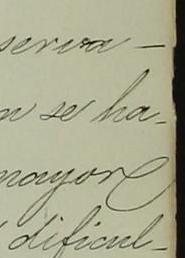 serva-
n se ha-
mayor
dificul-